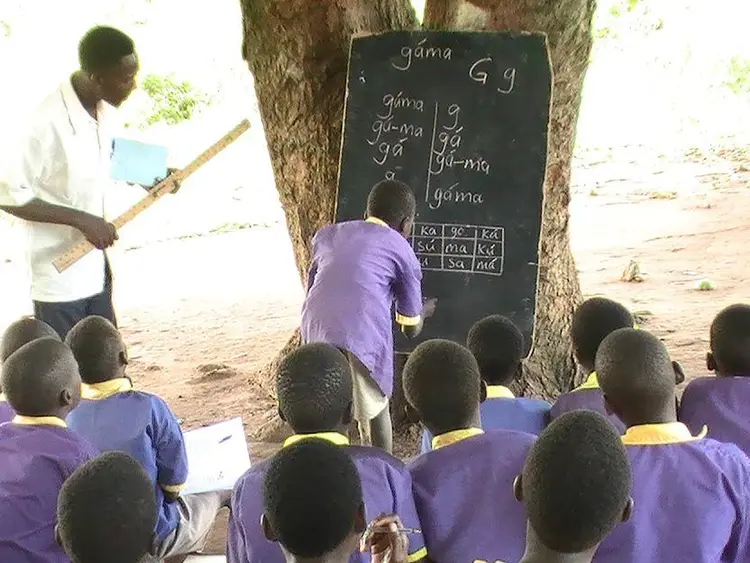 gáma
G g
gáma g
gá-ma gá
gá gá-ma
gáma
ka go ká
sú ma kú
sa má